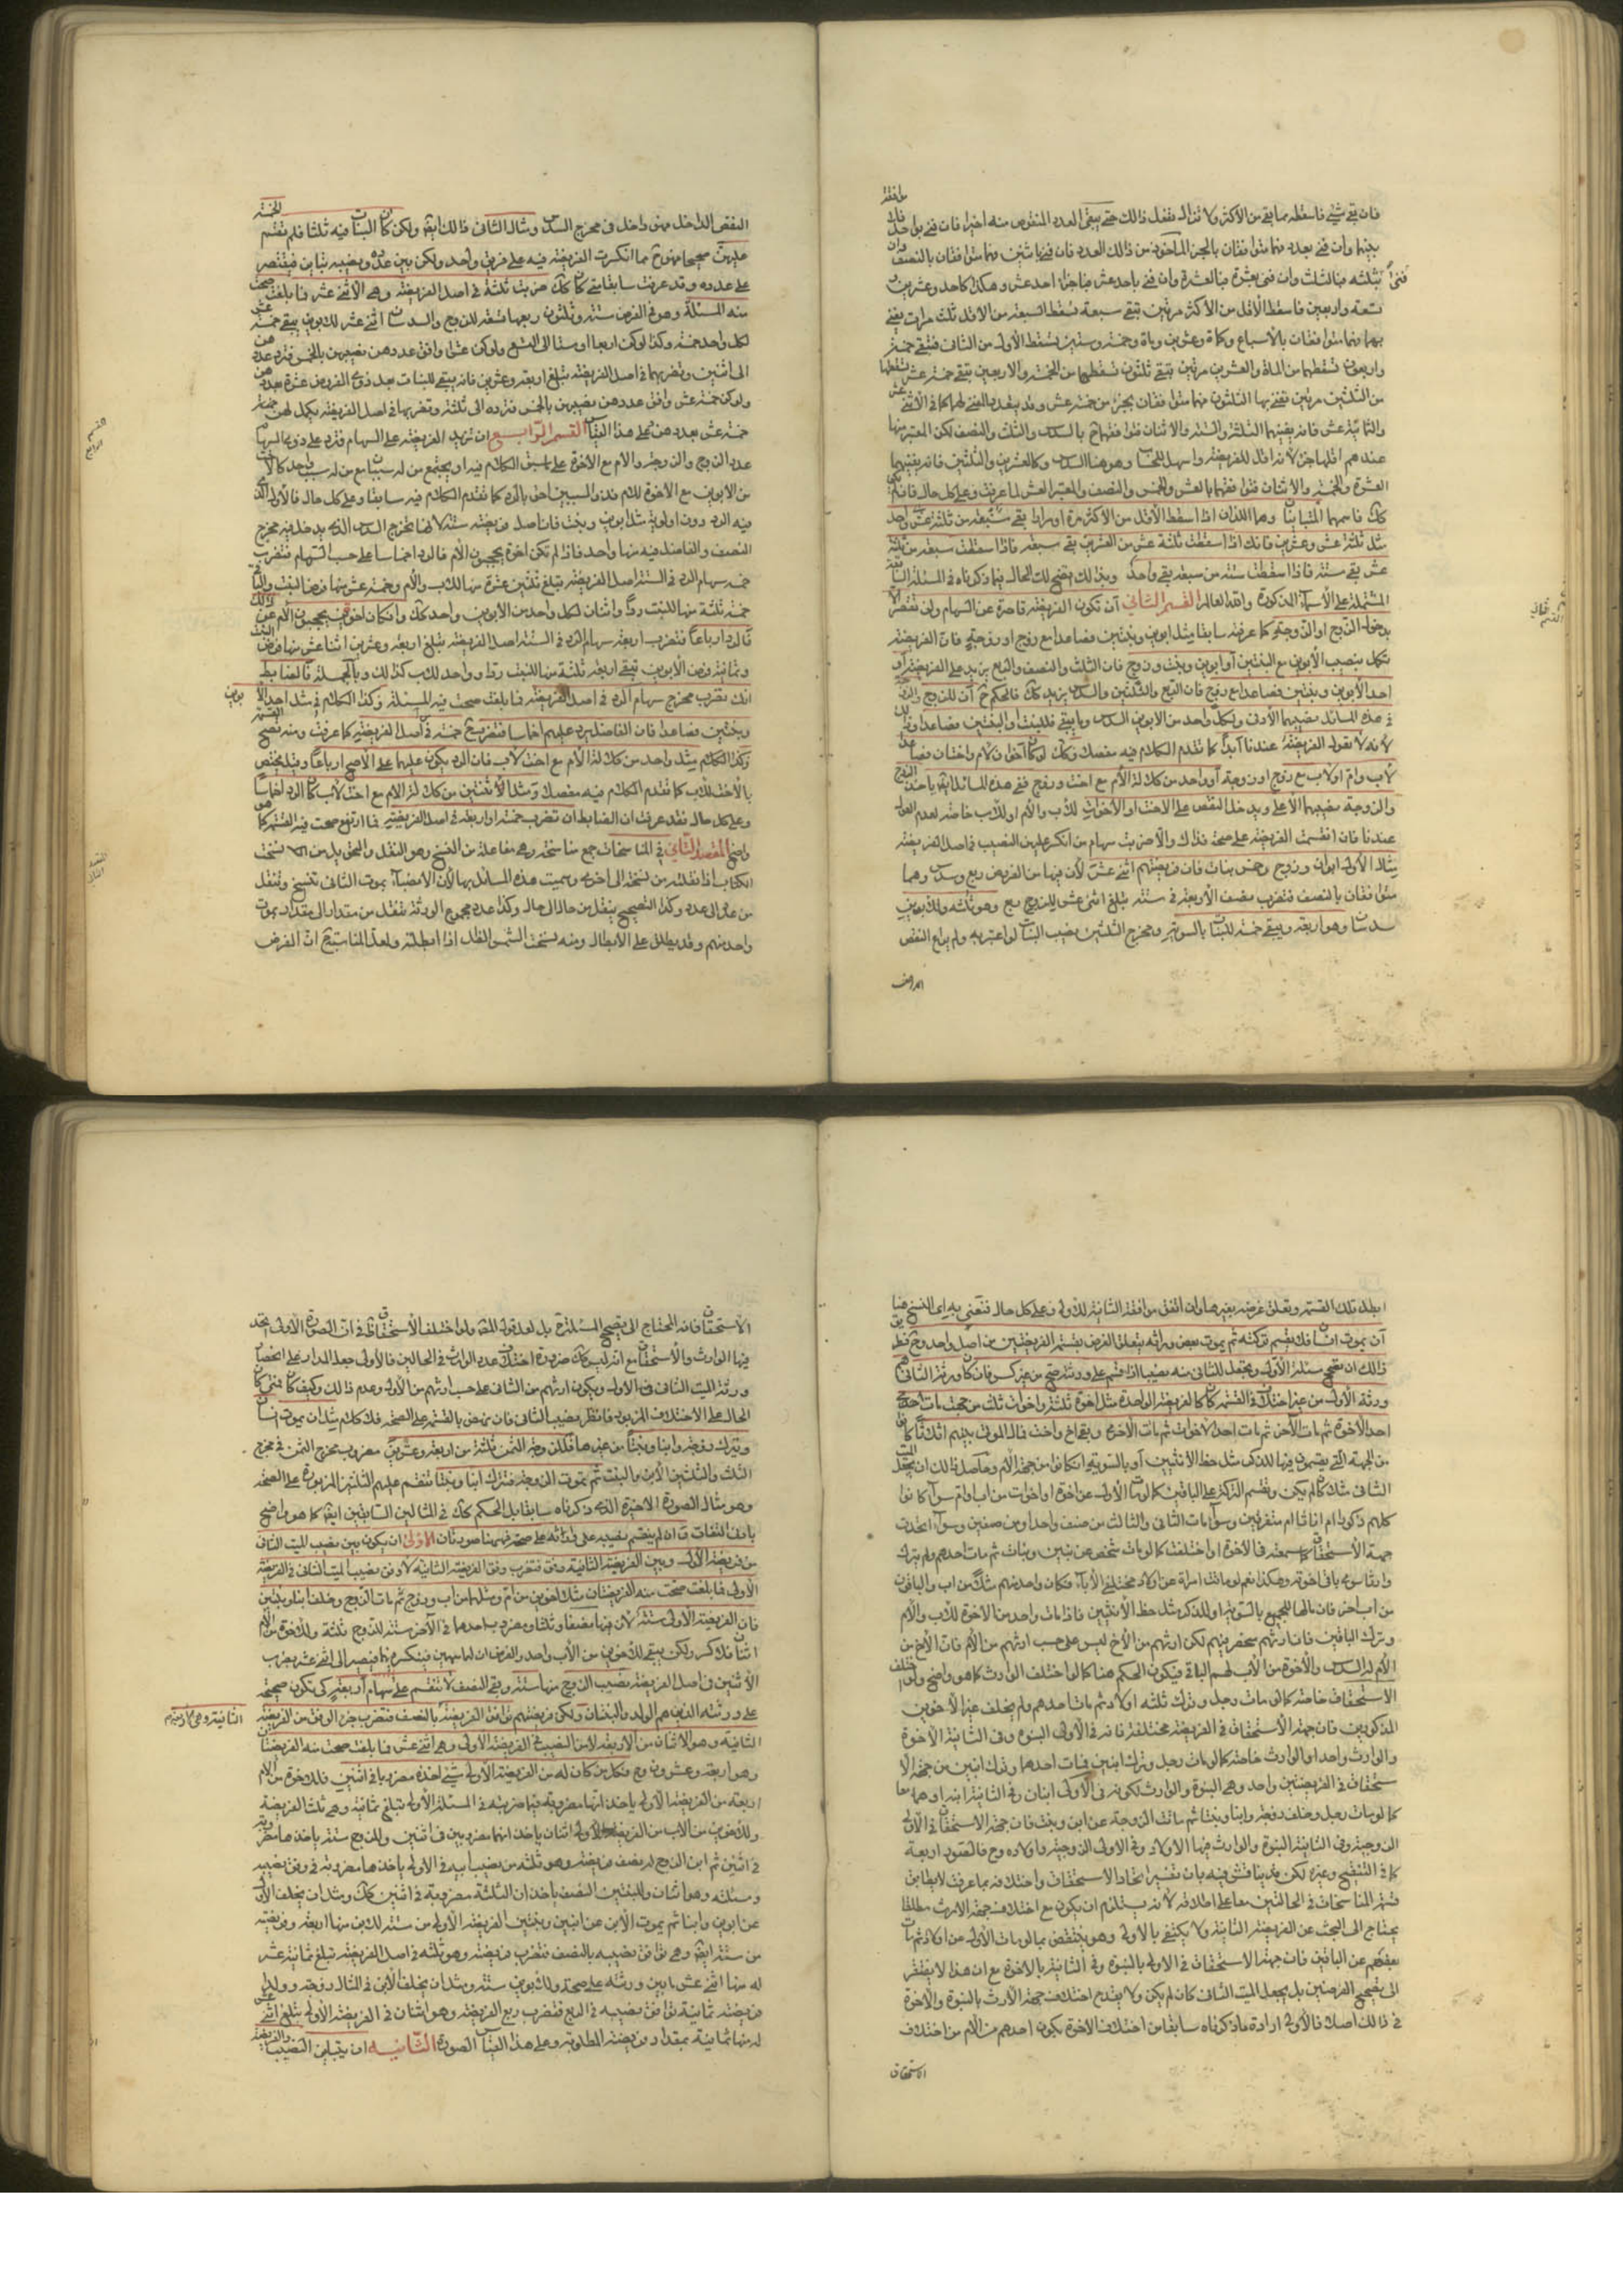 فان بقي شيء فاسقطه مما بقي من الأكثر ولا تزال تفعل ذالك حتى يفنى العدد المنقوص منه اخيرا فان فني بواحد فلا موافقة
بينهما وان فني بعدد فهما متوافقان بالجزء المأخوذ من ذالك العدد فان فنيا باثنين فهما متوافقان بالنصف وان
بثلثه فبالثلث وان فنى بعشرة فبالعشر وان فنى باحد عشر فباجزاء احد عشر وهكذا كاحد وعشرين و
تسعة واربعين فاسقط الأقل من الأكثر مرتين تبقى سبعة تسقط السبعة من الاقل ثلث مرات يفنى
بهما فهما متوافقان بالأسباع وكمائة وعشرين ومائة وخمسة وستين يسقط الأول من الثاني فتبقى خمسة
واربعون تسقطها من المائة والعشرين مرتين تبقى ثلثون تسقطها من الخمسة والاربعين تبقى خمسة عشر تسقطها
من الثلثين مرتين تفنى بها الثلثون فهما متوافقان بجزء من خمسة عشر وقد يتعدد المفنى لهما كما في الاثنى عشر
والثمانية عشر فانه يفنيهما الثلثة والستة والاثنان فتوافقهما ح بالسدس والثلث والنصف لكن المعتبر منها
عندهم اقلها جزءا لانه اقل للفريضة واسهل للحساب وهو هنا السدس وكالعشرين والثلثين فانه يفنيهما
العشرة والخمسة والاثنان فتوافقهما بالعشر والخمس والنصف والمعتبر العشر لما عرفت وعلى كل حال فان لم يكن
كك فاسمهما المتباينان وهما اللذان اذا اسقط الأقل من الأكثر مرة او مرارا بقي
مثل ثلثة عشر وعشرين فانك اذا اسقطت ثلثة عشر من العشرين بقي سبعة فاذا اسقطت سبعة من ثلثة
عشر بقي ستة فاذا اسقطت ستة من سبعة بقي واحد وبذالك يتضح لك الحال فيما ذكرناه في المسئلة السابقة
المشتملة على الأسماء المذكورة والله العالم القسم الثاني ان تكون الفريضة قاصرة عن السهام ولن تقصر الا
بدخول الزوج او الزوجة كما عرفته سابقا مثل ابوين وبنتين فصاعدا مع زوج او زوجة فان الفريضة
تكمل بنصيب الأبوين مع البنتين أو ابوين وبنت وزوج فان الثلث والنصف والربع يزيد على الفريضة أو
احد الأبوين وبنتين فصاعدا مع زوج فان الربع والثلثين والسدس يزيد كك فالحكم ح ان للزوج والزوجة
في هذه المسائل نصيبهما الأدنى ولكل واحد من الابوين السدس وما يبقى فللبنت او البنتين فصاعدا وذلك
لانه لا تعول الفريضة عندنا أبدا كما تقدم الكلام فيه مفصلا وكك لو كان اخوان لام واختان فصاعدا
لأب وام او لاب مع زوج او زوجة أو واحد من كلالة الأم مع اخت وزوج ففي هذه المسائل ايضا ياخذ الزوج
والزوجة نصيبهما الأعلى ويدخل النقص على الاخت او الأخوات للأب والأم او للاب خاصة لعدم العول
عندنا فان انقسمت الفريضة على صحة فذاك والا ضربت سهام من انكسر عليهم النصيب في اصل الفريضة
مثال الأول ابوان وزوج وخمس بنات فان فريضتهم اثنى عشر لأن فيها من الفروض ربع وسدس وهما
متوافقان بالنصف فتضرب نصف الأربعة في ستة تبلغ اثنى عشر للزوج ربع وهو ثلثه وللابوين
سدسان وهو اربعة ويبقى خمسة للبنات بالسوية ومخرج الثلثين نصيب البنات لو اعتبر به ولم يراع النقص
القسم الثاني
النقص الداخل فهو داخل في مخرج السدس ومثال الثاني ذالك ايضا ولكن كان البنات فيه ثلثا فلم تقسم الخمسة
عليهن صحيحا فهو ح مما انكسرت الفريضة فيه على فريق واحد ولكن بين عدده ونصيبه تباين فيقتصر
على عدده وقد عرفت سابقا متى كان كك ضربت ثلثة في اصل الفريضة وهي الاثنى عشر فما بلغت صحت
منه المسئلة وهو في الفرض ستة وثلثون ربعها تسعة للزوج والسدسان اثنى عشر للابوين يبقى خمسة عشر
لكل واحدة خمسة وكذا لو كن اربعا او ستا الى التسع ولو كن عشرا وافق عددهن نصيبهن بالخمس فترد عددهن
الى اثنين وتضربهما في اصل الفريضة تبلغ اربعة وعشرين فانه يبقى للبنات بعد ذوي الفروض عشرة بعددهن
ولو كن خمسة عشر وافق عددهن نصيبهن بالخمس فترده الى ثلثة وتضربها في اصل الفريضة يكمل لهن خمسة
خمسة عشر بعددهن وعلى هذا القياس القسم الرابع ان تزيد الفريضة على السهام فترد على ذوي السهام
عدا الزوج والزوجة والام مع الاخوة على ما سبق الكلام فيه او يجتمع من له سببان مع من له سبب واحد كالاخت
من الابوين مع الاخوة للام فذو السببين احق بالرد كما تقدم الكلام فيه سابقا وعلى كل حال فالأول الذي
فيه الرد دون اولوية مثل ابوين وبنت فان اصل فريضته ستة لانها مخرج السدس الذي يدخل فيه مخرج
النصف والفاضل فيه منها واحد فاذا لم تكن اخوة يحجبون الأم فالرد اخماسا على حسب السهام فتضرب
خمسة سهام الرد في الستة اصل الفريضة تبلغ ثلثين عشرة منها للاب والأم وخمسة عشر منها فرض البنت والباقي
خمسة ثلثة منها للبنت ردا واثنان لكل واحد من الأبوين واحد كك وان كان اخوة يحجبون الأم عن ذالك
فالرد ارباعا فتضرب اربعة سهام الرد في الستة اصل الفريضة تبلغ اربعة وعشرين اثنا عشر منها فرض البنت
وثمانية فرض الأبوين تبقى اربعة ثلثة منها للبنت ردا وواحد للاب كذالك وبالجملة فالضابط
انك تضرب مخرج سهام الرد في اصل الفريضة فما بلغت صحت فيه المسئلة وكذا الكلام في مثل احد الأبوين
وبنتين فصاعدا فان الفاضل يرد عليهم اخماسا فتضرب ح خمسة في اصل الفريضة كما عرفت ومنه تصح القسمة
وكذا الكلام مثل واحد من كلالة الأم مع اخت لاب فان الرد يكون عليهما على الأصح ارباعا وقيل يختص
بالأخت للاب كما تقدم الكلام فيه مفصلا ومثل الأثنين من كلالة الام مع اخت لاب كان الرد اخماسا
وعلى كل حال فقد عرفت ان الضابط ان تضرب خمسة او اربعة في اصل الفريضة فما ارتفع صحت منه القسمة كما هو
واضح المقصد الثاني في المناسخات جمع مناسخة وهي مفاعلة من النسخ وهو النقل والتحويل من الا نسخت
الكتاب اذا نقلته من نسخة الى اخرى وسميت هذه المسائل بها لأن الانصباء بموت الثاني تنسخ وتنقل
من عدد الى عدد وكذا التصحيح ينقل من حال الى حال وكذا عدد مجموع الورثة ينتقل من مقدار الى مقدار بموت
واحد منهم وقد يطلق على الابطال ومنه نسخت الشمس الظل اذا ابطلته ولعل المناسبة ح ان الفرض
القسم الرابع
المقصد الثاني
ابطل تلك القسمة وتعلق غرضه بغيرها وان اتفق موافقة الثانية للأولى وعلى كل حال فنعني به اي النسخ هنا
أن يموت انسان فلا تقسم تركته ثم يموت بعض وراثه يتعلق الغرض بقسمة الفريضتين من اصل واحد وح فطريق
ذالك ان تصحح مسئلة الأول ويجعل للثاني منه نصيب اذا قسم على ورثته صح من غير كسر فان كان ورثة الثاني هم
ورثة الأول من غير اختلاف في القسمة كان كالفريضة الواحدة مثل اخوة ثلثة واخوات ثلث من جهة مات احد
احد الأخوة ثم مات الآخر ثم مات احدى الأخوات ثم مات الأخرى وبقي اخ واخت فمال الموتى بينهم اثلاثا كان
من الجهة التي يقسمون فيها للذكر مثل حظ الأنثيين أو بالسوية ان كانوا من جهة الأم وحاصل ذالك ان يجعل الميت
الثاني مثلا كان لم يكن وتقسم التركة على الباقين كما لو مات الأول عن اخوة او اخوات من اب وام سواء كانوا
كلهم ذكورا ام اناثا ام متفرقين وسواء مات الثاني والثالث من صنف واحد او من صنفين وسواء اتحدت
جهة الاستحقاق كما سمعته في الأخوة او اختلفت كما لو مات شخص عن بنين وبنات ثم مات احدهم ولم يترك
وارثا سوى باقي اخوته وهكذا نعم لو ماتت امرأة عن اولاد مختلفي الأباء فكان واحد منهم مثلا من اب والباقون
من اب اخر فان مالها للجميع بالسوية او للذكر مثل حظ الأنثيين فاذا مات واحد من الاخوة للأب والأم
وترك الباقين فان ارثهم منحصر فيهم لكن ارثهم من الأخ ليس على حسب ارثهم من الأم فان الأخ من
الأم له السدس والأخوة من الأب لهم الباقي فيكون الحكم هنا كما لو اختلف الوارث كما هو واضح ولو اختلف
الاستحقاق خاصة كما لو مات رجل وترك ثلثه اولاد ثم مات احدهم ولم يخلف غير الأخوين
المذكورين فان جهة الأستحقاق في الفريضة مختلفة فانه في الأولى البنوة وفي الثانية الأخوة
والوارث واحدا او الوارث خاصة كما لو مات رجل وترك ابنين فمات احدهما وترك ابنين من جهة الا
ستحقاق في الفريضتين واحد وهي البنوة والوارث لكونه في الأولى ابنان وفي الثانية ابنه او هما معا
كما لو مات رجل وخلف زوجة وابنا وبنتا ثم ماتت الزوجة عن ابن وبنت فان جهة الاستحقاق في الأولى
الزوجية وفي الثانية البنوة والوارث فيها الاولاد وفي الاولى الزوجة واولاده وح فالصور اربعة
كما في التنقيح وغيره لكن قد يناقش فيه بان تفسير اتحاد الاستحقاق واختلافه بما عرفت لا يطابق
قسمة المناسخات في الحالتين معا على اطلاقه لانه يستلزم ان يكون مع اختلاف جهة الارث مطلقا
يحتاج الى البحث عن الفريضة الثانية ولا يكتفي بالأولى وهو ينتقض بما لو مات الأول عن اولاد ثم مات
بعضهم عن الباقين فان جهة الاستحقاق في الاولى بالبنوة وفي الثانية بالاخوة مع ان هذا لا يفتقر
الى تصحيح الفرضين بل يجعل الميت الثاني كان لم يكن ولا يقدح اختلاف جهة الأرث بالبنوة والأخوة
في ذالك اصلا فالأولى ارادة ما ذكرناه سابقا من اختلاف الأخوة بكون احدهم من الأم من اختلاف
الاستحقاق
الأستحقاق فانه المحتاج الى تصحيح المسئلة بل
فيها الوارث والأستحقاق مع انه ليس كك ضرورة اختلاف عدد الوارث في الحالين فالأولى جعل المدار على انحصار
ورثة الميت الثاني في الأول ويكون ارثهم من الثاني على حسب ارثهم من الأول وعدم ذالك وكيف كان فمتى كان
الحال على الاختلاف المزبور فانظر نصيب الثاني فان نهض بالقسمة على الصحة فلا كلام مثل أن يموت انسان
ويترك زوجة وابنا وبنتا من غيرها فللزوجة الثمن ثلثة من اربعة وعشرين مضروب مخرج الثمن في مخرج
الثلث والثلثين الأبن والبنت ثم يموت الزوجة فتترك ابنا وبنتا تقسم عليهم الثلثة المزبورة على الصحة
وهو مثال الصورة الاخيرة الذي ذكرناه سابقا بل الحكم كك في المثالين السابقين ايضا كما هو واضح
بادنى التفات وان لم ينقسم نصيبه على ورثته على صحة فهنا صورتان الأولى ان يكون بين نصيب الميت الثاني
من فريضة الأول وبين الفريضة الثانية وفق فتضرب وفق الفريضة الثانية لا وفق نصيب الميت الثاني في الفريضة
الأولى فما بلغت صحت منه الفريضتان مثل اخوين من ام ومثلهما من اب وزوج ثم مات الزوج وخلف ابنا وبنتين
فان الفريضة الأولى ستة لان فيها نصفا وثلثا ومضروب احدهما في الآخر ستة للزوج ثلثة وللاخوة من الأم
اثنان فلا كسر ولكن يبقى للاخوين من الأب واحد والفرض ان لهما سهمين فينكسر فيصير الى اثنى عشر بضرب
الأثنين في اصل الفريضة نصيب الزوج منها ستة وفي النصف لا تنقسم على سهام أربعة لكي تكون صحيحة
على ورثته الذين هم الولد والبنتان ولكن فريضتهم توافق الفريضة بالنصف فتضرب جزء الوفق من الفريضة
الثانية وهو الاثنان من الأربعة لا من النصيب في الفريضة الأولى وهي اثنى عشر فما بلغت صحت منه الفريضتان
وهو اربعة وعشرون وح فكل من كان له من الفريضة الأولى شيء اخذه مضروبا في اثنين فللاخوة من الأم
اربعة من الفريضة الأولى ياخذانها مضروبة فيما ضربته في المسئلة الأولى تبلغ ثمانية وهي ثلث الفريضة
وللاخوين من الاب من الفريضة الاولى اثنان ياخذانهما مضروبين في اثنين وللزوج ستة ياخذها مضروبة
في اثنين ثم ابن الزوج له نصف فريضته وهو ثلثه من نصيب ابيه في الأولى ياخذها مضروبة في وفق نصيبه
ومسئلته وهو اثنان وللبنتين النصف ياخذان الثلثة مضروبة في اثنين كك ومثل ان يخلف الأول
عن ابوين وابنا ثم يموت الأبن عن ابنين وبنتين الفريضة الأولى من ستة للابن منها اربعة وفريضته
من ستة ايضا وهي توافق نصيبه بالنصف فتضرب نصف فريضته وهو ثلثه في اصل الفريضة تبلغ ثمانية عشر
له منها اثنى عشر بين ورثته على صحة وللابوين ستة ومثل ان يخلف الأبن في المثال زوجة وولدا
فريضته ثمانية توافق نصيبه في الربع فتضرب ربع الفريضة وهو اثنان في الفريضة الأولى تبلغ اثنى عشر
له منها ثمانية بمقدار فريضته المطلوبة وعلى هذا القياس الصورة الثانيه ان يتباين النصيب والفريضة